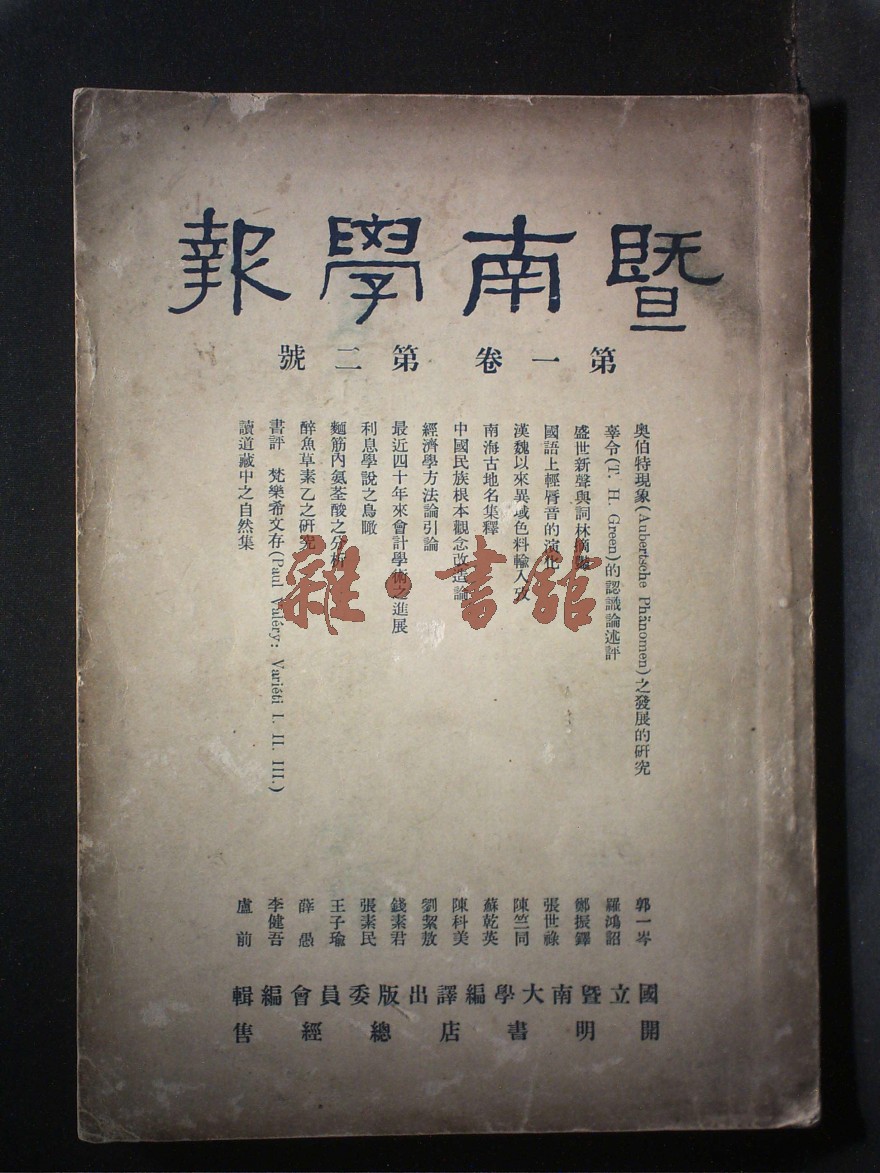 暨南學報
第一卷 第二號
奧伯特現象(Aubertsche Phänomen)之發展的研究 郭一岑
辜令(T. H. Green)的認識論述評 羅鴻詔
盛世新聲與詞林摘艷 鄭振鐸
國語上輕脣音的演化 張世祿
漢魏以來異域色料輸入攷 陳竺同
南海古地名集釋 蘇乾英
中國民族根本觀念改造論 陳科美
經濟學方法論引論 劉絜敖
最近四十年來會計學術之進展 錢素君
利息學說之鳥瞰 張素民
麵筋內氨荃酸之分析 王子瑜
醉魚草素乙之研究 薛愚
書評 梵樂希文存(Paul Valéry: Variéti I. II. III.) 李健吾
讀道藏中之自然集 盧前
國立暨南大學編譯出版委員會編輯
開明書店總經售
雜·書館